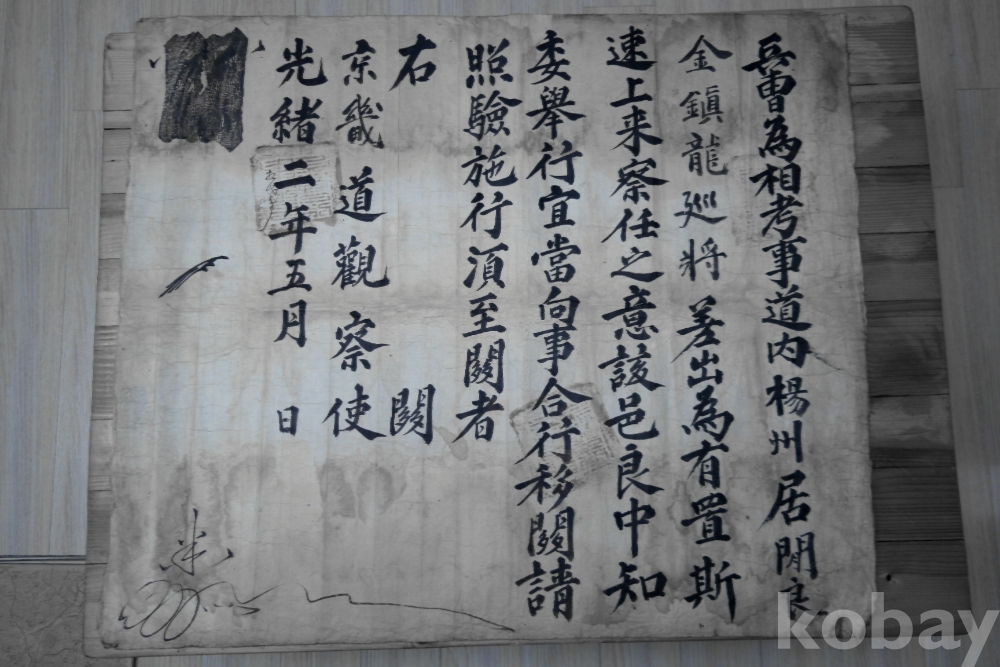 兵曺為相考事道內楊州居閑良
金鎭龍廵將差出為有置斯
速上来察任之意該邑良中知
委舉行宜當向事合行移關請
照驗施行湏至關者
右關
京畿道觀察使
光緖二年五月日
kobay